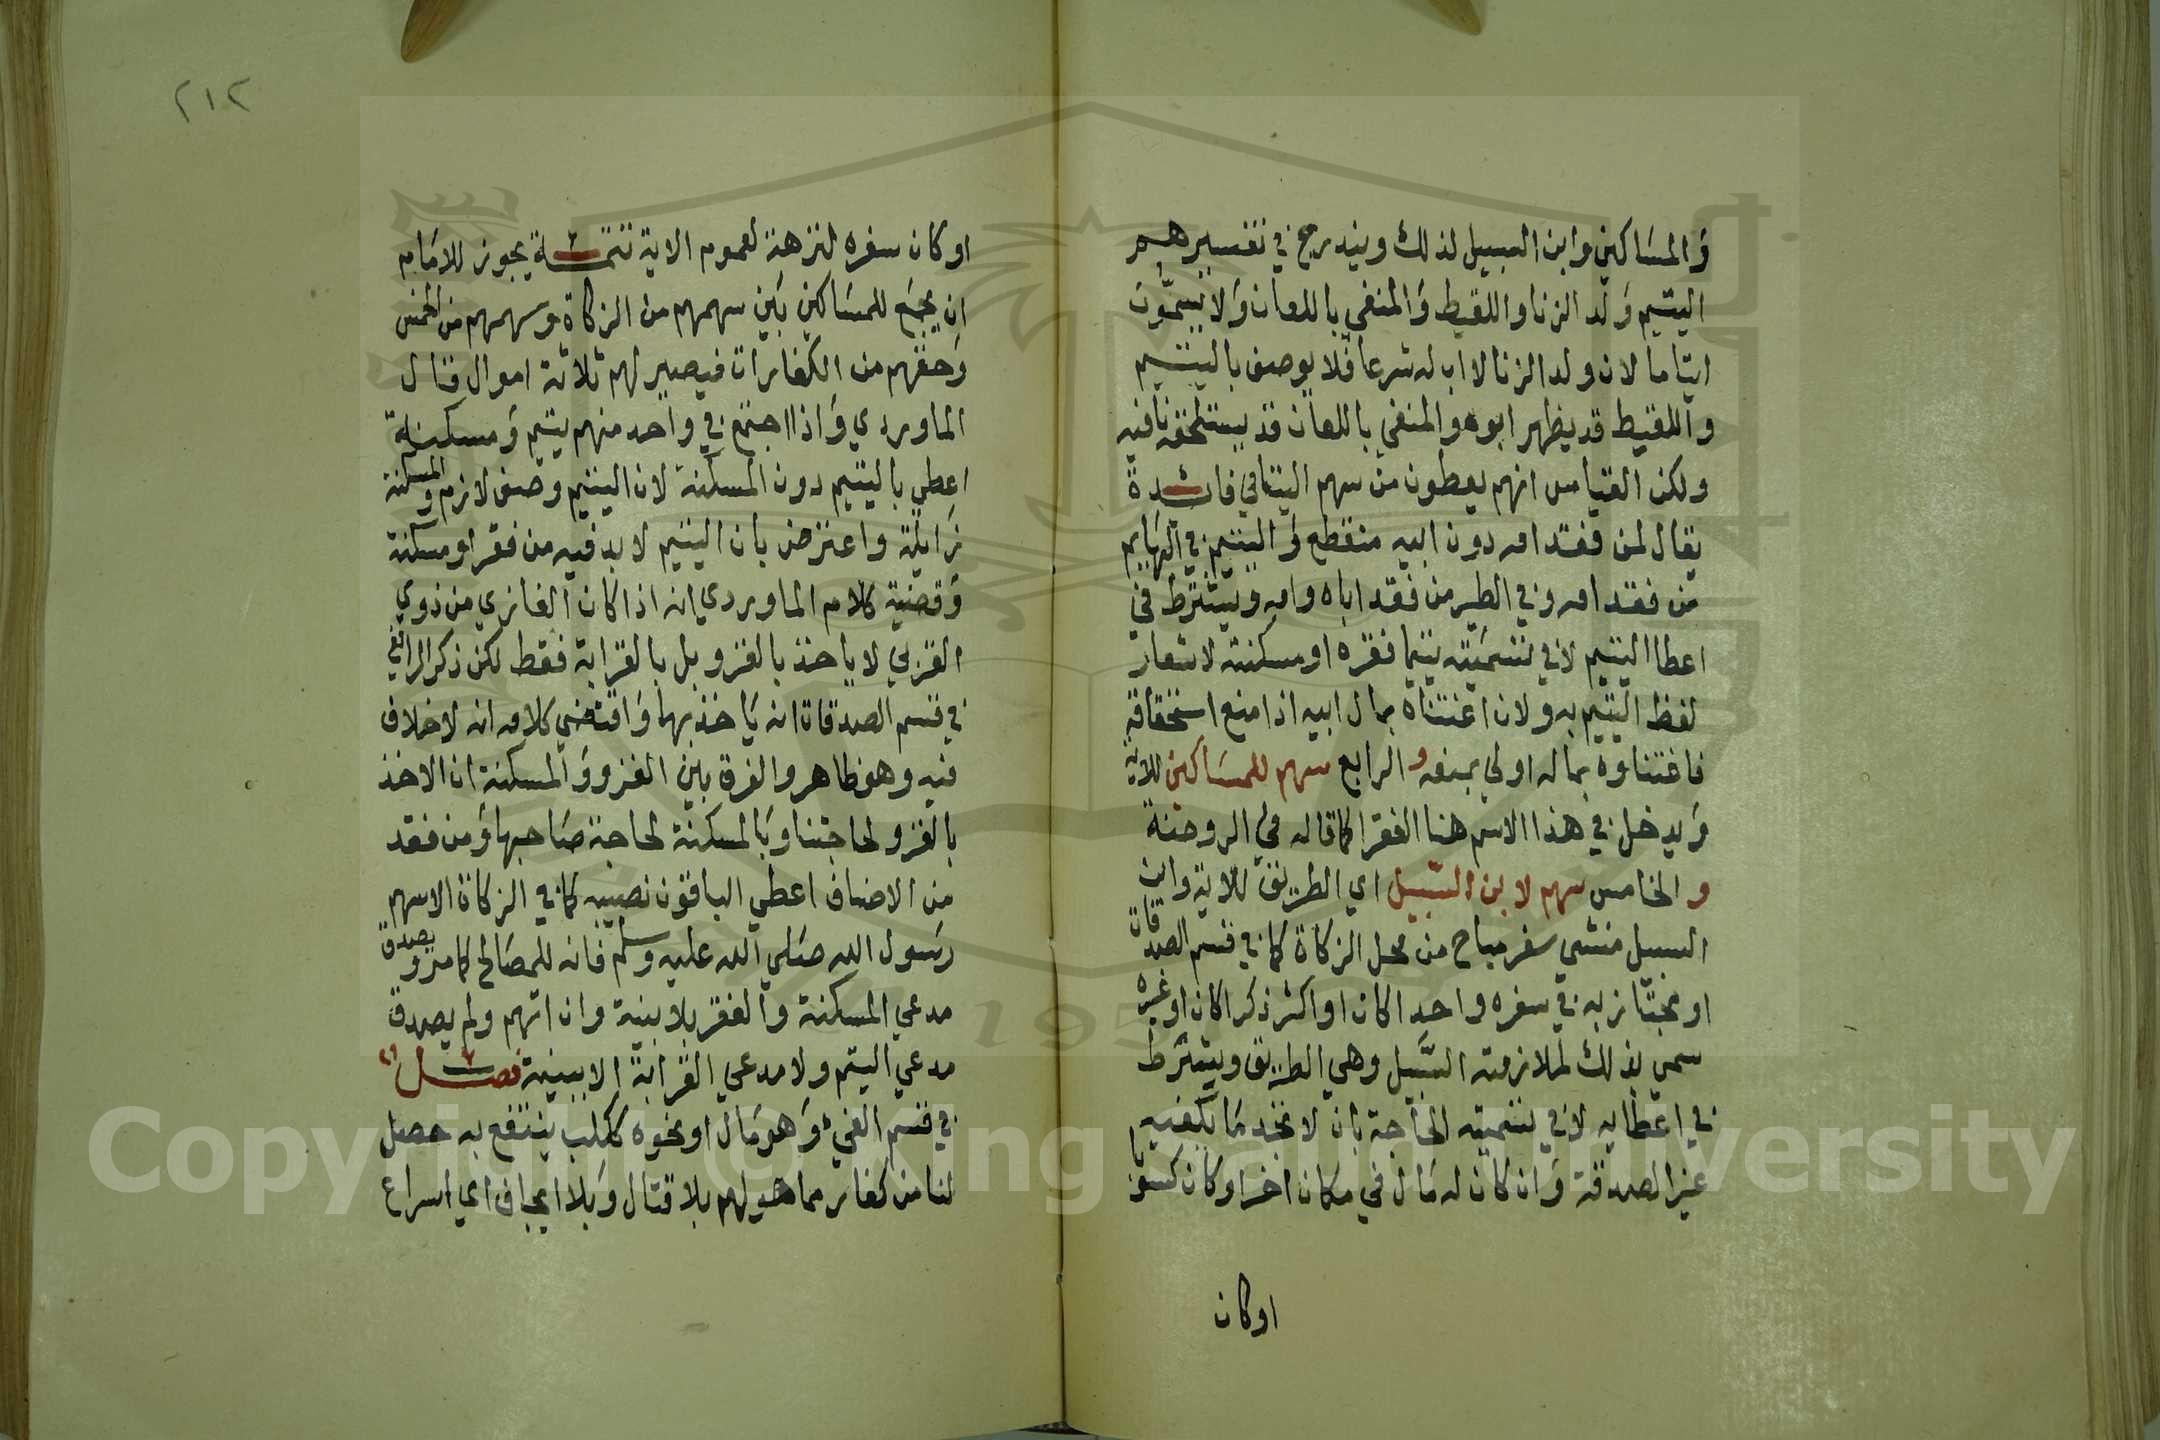 والمساكين وابن السبيل لذلك ويندرج في تفسيرهم
اليتيم ولد الزنا واللقيط والمنفي باللعان ولا يسمون
ايتاما لان ولد الزنا لا اب له شرعا فلا يوصف باليتيم
واللقيط قد يظهر ابوه والمنفي باللعان قد يستلحقه نافيه
ولكن القياس انهم يعطون من سهم اليتامي فائدة
يقال لمن فقد امه دون ابيه منقطع و اليتيم في البهايم
من فقد امه وفي الطير من فقد اباه وامه ويشترط في
اعطا اليتيم لا في تسميته يتيما فقره او مسكنته لاشعار
لفظ اليتيم به ولان اغتناه بمال ابيه اذا منع استحقاقه
فاغتناوه بماله اولي بمنعه و الرابع سهم للمساكين للاية
ويدخل في هذا الاسم هنا الفقرا كما قاله في الروضة
و الخامس سهم لابن السبيل اي الطريق للاية وابن
السبيل منشي سفر مباح من محل الزكاة كما في قسم الصدقات
او مجتاز به في سفره واحدا كان او اكثر ذكرا كان او غيره
سمي بذلك لملازمته السبيل وهي الطريق ويشترط
في اعطايه لا في تسميته الحاجة بان لا يجد ما يكفيه
غير الصدقة وان كان له مال في مكان اخر او كان كسوبا
او كان
٢١٢
او كان سفره لنزهة لعموم الاية تتمة يجوز للامام
ان يجمع للمساكين بين سهمهم من الزكاة وسهمهم من الخمس
وحقهم من الكفارات فيصير لهم ثلاثة اموال قال
الماوردي واذا اجتمع في واحد منهم يتم ومسكنة
اعطي باليتيم دون المسكنة لان اليتيم وصف لازم والمسكنة
زايلة واعترض بان اليتيم لا بد فيه من فقر او مسكنة
وقضية كلام الماوردي انه اذا كان الغازي من ذوي
القربي لا ياخذ بالغزو بل بالقرابة فقط لكن ذكر الرافعي
في قسم الصدقات انه ياخذ بهما واقتضي كلامه انه لا خلاف
فيه وهو ظاهر والفرق بين الغزو والمسكنة ان الاخذ
بالغزو لحاجتنا وبالمسكنة لحاجة صاحبها ومن فقد
من الاصناف اعطي الباقون نصيبه كما في الزكاة الا سهم
رسول الله صلي الله عليه وسلم فانه للمصالح كما مر ويصدق
مدعي المسكنة والفقر بلا بينة وان اتهم ولم يصدق
مدعي اليتم ولا مدعي القرابة الا ببينة فصل
في قسم الفيء وهو مال او نحوه ككلب ينتفع به حصل
لنا من كفار مما هو لهم بلا قتال وبلا ايجاف اي اسراع
Copyright © King Saud University
195